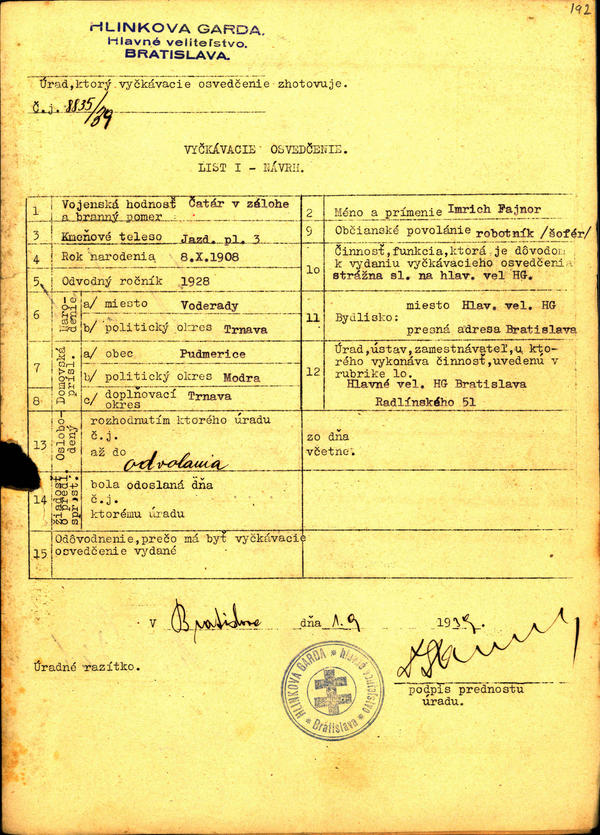 192
HLINKOVA GARDA.
Hlavné veliteľstvo.
BRATISLAVA.
Úrad, ktorý vyčkávacie osvedčenie zhotovuje.
č.j. 8835/39
VYČKÁVACIE OSVEDČENIE.
LIST I - NÁVRH.
1 Vojenská hodnosť Čatár v zálohe
a branný pomer
2 Méno a prímenie Imrich Fajnor
3 Kmeňové teleso Jazd. pl. 3
9 Občianské povolánie robotník /šofér/
4 Rok narodenia 8.X.1908
10 Činnosť, funkcia, ktorá je dôvodom
k vydaniu vyčkávacieho osvedčenia
strážna sl. na hlav. vel HG.
5 Odvodný ročník 1928
6 Narodenie. a/ miesto Voderady
b/ politický okres Trnava
11 Bydlisko: miesto Hlav. vel. HG
presná adresa Bratislava
7 Domovská prísl. a/ obec Pudmerice
b/ politický okres Modra
8 c/ doplňovací Trnava
okres
12 Úrad, ústav, zamestnávateľ, u kto-
rého vykonáva činnosť, uvedenú v
rubrike 10.
Hlavné vel. HG Bratislava
Radlínského 51
13 Oslobo-
dený
rozhodnutím ktorého úradu
č.j.
až do odvolania
zo dňa
včetne.
14 žiadosť
o predl.
spr. st.
bola odoslaná dňa
č.j.
ktorému úradu
15 Odôvodnenie, prečo má byť vyčkávacie
osvedčenie vydané
V Bratislave dňa 1.9 1939.
Úradné razítko.
HLINKOVA GARDA * hlavné veliteľstvo * Bratislava
podpis prednostu
úradu.